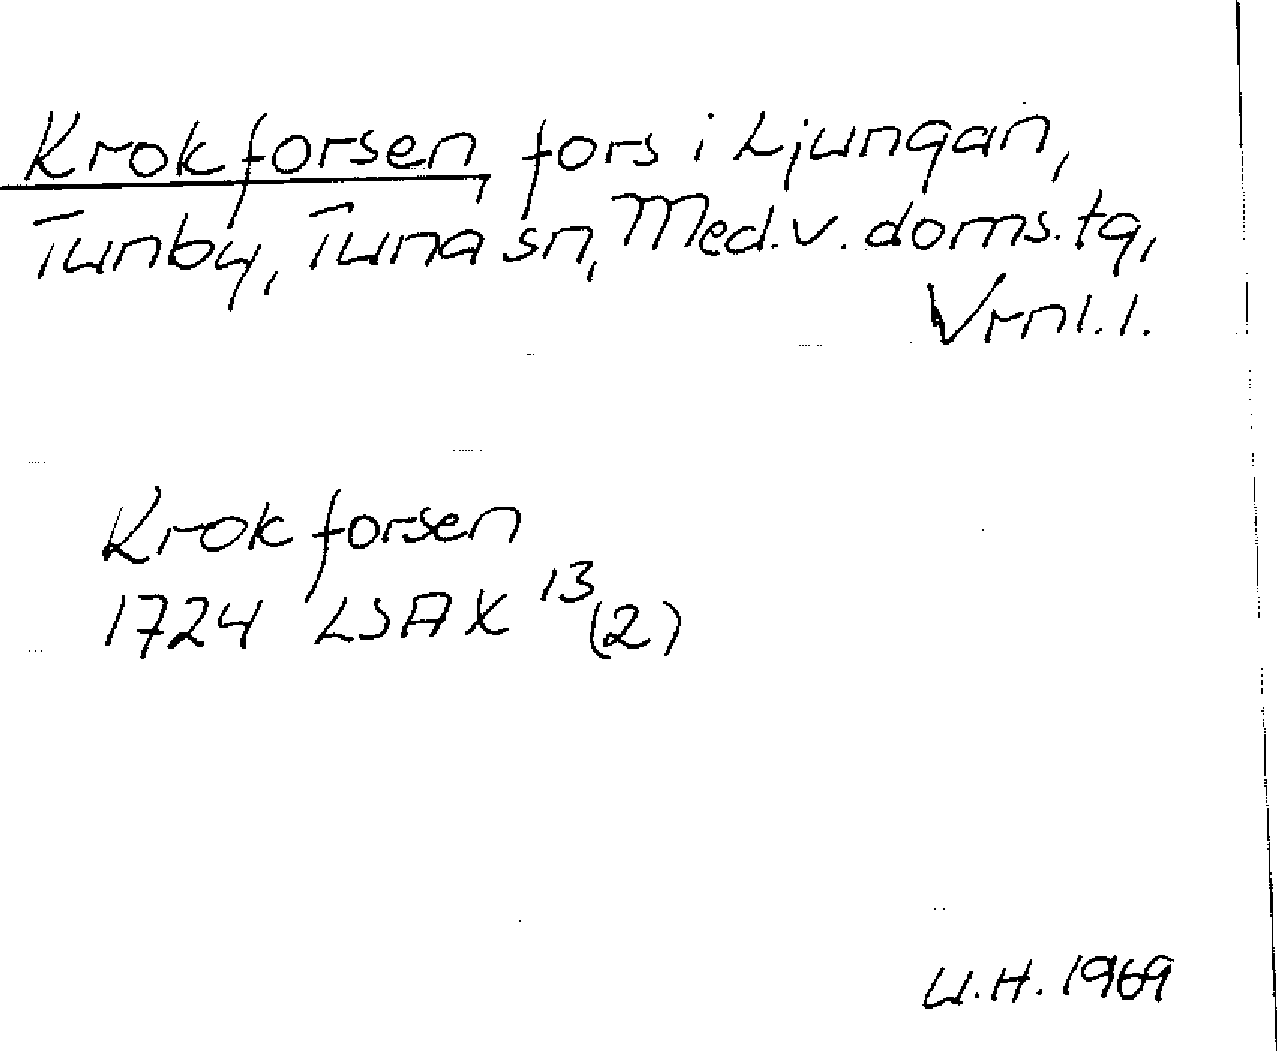 Krokforsen, fors i Ljungan,
Tunby, Tuna sn, Med.v. doms.tg,
Vrnl.l.
Krokforsen
1724 LSA X 13(2)
U.H. 1969